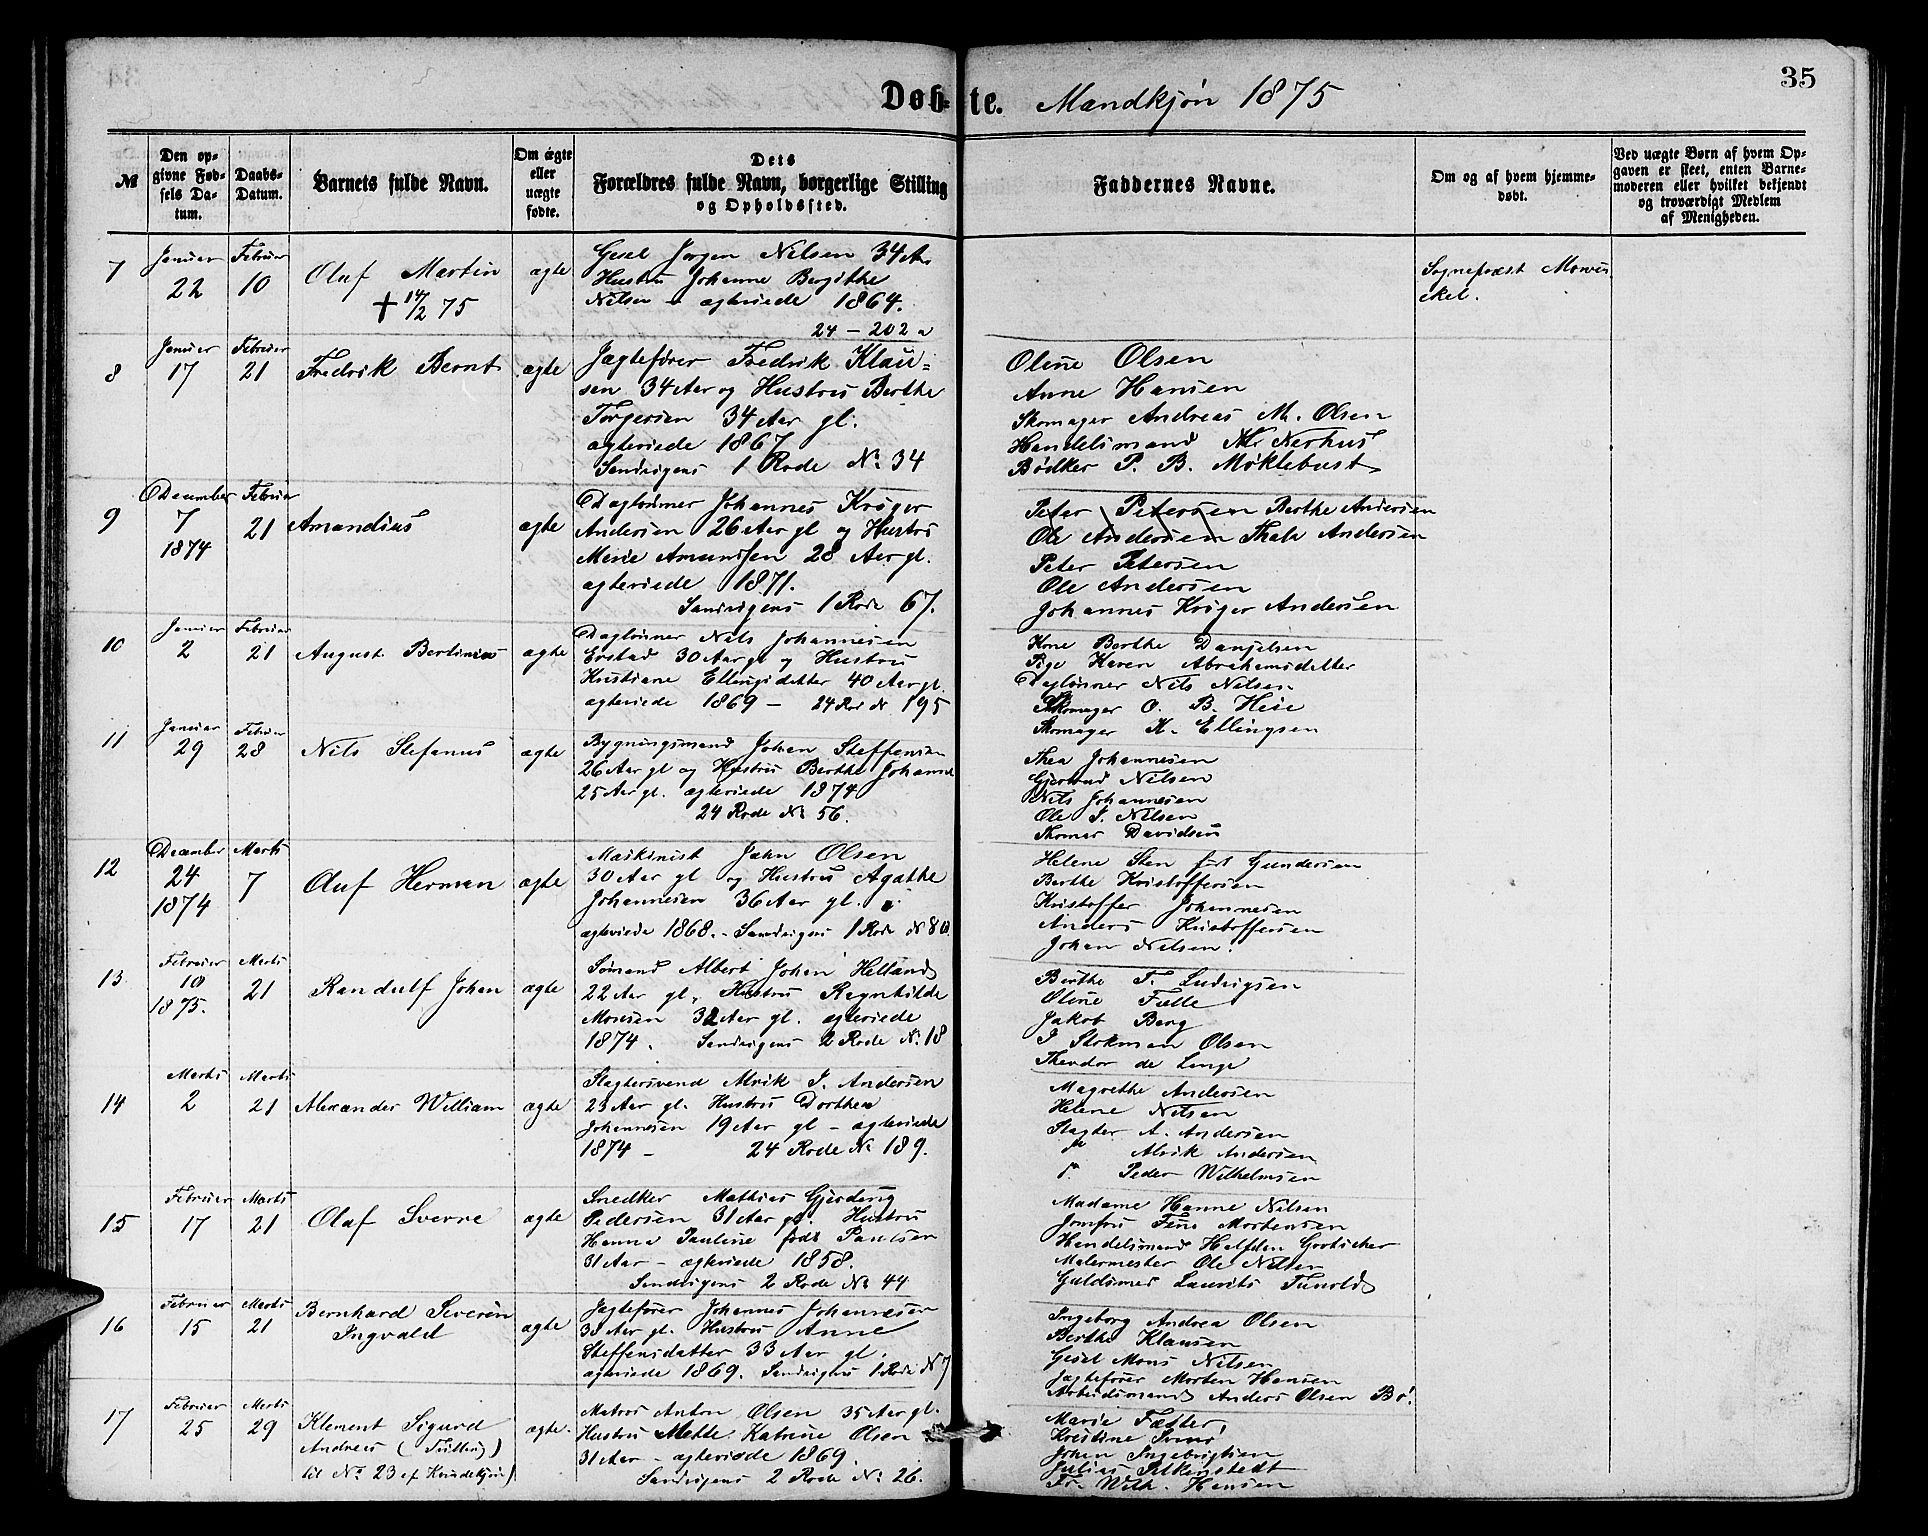 Døbte. Mandkjøn 1875
35
№
Den op-
givne Fød-
sels Da-
tum.
Daabs-
Datum.
Barnets fulde Navn.
Om ægte
eller
uægte
fødte.
Dets
Forældres fulde Navn, borgerlige Stilling
og Opholdssted.
Faddernes Navne.
Om og af hvem hjemme-
døbt.
Ved uægte Børn af hvem Op-
gaven er skeet, enten Barne-
moderen eller hvilket bekjendt
og troværdigt Medlem
af Menigheden.
7
Januar
22
Februar
10
Oluf Martin
+ 14/2 75
ægte
Gesel Jørgen Nilsen 34 Aar
Hustru Johanne Bergithe
Nilsen – ægteviede 1864.
24 – 202 a
Sognepræst
8
Januar
17
Februar
21
Fredrik Bernt
ægte
Jægtefører Fredrik Klau-
sen 34 Aar og Hustru Berthe
Torgersen 34 Aar gl.
ægteviede 1867
Sandvigens 1 Rode № 34
Oline Olsen
Anne Hansen
Skomager Andreas M. Olsen
Handelsmand M. Nerhus
Bødker P. B. Møklebust
9
December
7
1874
Februar
21
Amandius
ægte
Daglønner Johannes Krøger
Andersen 26 Aar gl og Hustru
Marie Amundsen 28 Aar gl.
ægteviede 1871.
Sandvigens 1 Rode 67.
Peter Petersen Berthe Andersen
Ole Andersen Thale Andersen
Peter Petersen
Ole Andersen
Johannes Krøger Andersen
10
Januar
2
Februar
21
August Bertinius
ægte
Daglønner Nils Johannesen
Erstad 30 Aar gl og Hustru
Kristiane Ellingsdatter 40 Aar gl.
ægteviede 1869 – 24 Rode № 195
Kone Berthe Danielsen
Pige Karen Abrahamsdatter
Daglønner Nils Nilsen
Skomager O. B. Heie
Skomager K. Ellingsen
11
Januar
29
Februar
28
Nils Stefanus
ægte
Bygningsmand Johan Steffensen
26 Aar gl og Hustru Berthe Johanne
25 Aar gl. ægteviede 1874
24 Rode № 56.
Thea Johannesen
Gjertrud Nilsen
Nils Johannesen
Ole J. Nilsen
Thomas Davidsen
12
December
24
1874
Marts
7
Oluf Herman
ægte
Maskinist John Olsen
30 Aar gl og Hustru Agathe
Johannesen 36 Aar gl.
ægteviede 1868. – Sandvigens 1 Rode № 80
Helene Sten født Gundersen
Berthe Kristoffersen
Kristoffer Johannesen
Anders Kristoffersen
Johan Nilsen.
13
Februar
10
1875.
Marts
21
Randulf Johan
ægte
Sømand Albert Johan Helland
22 Aar gl, Hustru Ragnhilde
Monsen 32 Aar gl. ægteviede
1874. Sandvigens 2 Rode № 18
Berthe T. Ludvigsen
Oline Fætte
Jakob Berg
J Stokman Olsen
Theodor de Lange
14
Marts
2
Marts
21
Alexander William
ægte
Slagtersvend Alrik J. Andersen
23 Aar gl. Hustru Dorthea
Johannesen 19 Aar gl – ægteviede
1874 – 24 Rode № 189.
Magrethe Andersen
Helene Nilsen
Slagter A. Andersen
Alrik Andersen
Peder Wilhelmsen
15
Februar
17
Marts
21
Olaf Sverre
ægte
Snedker Mathias Gjerding
Pedersen 31 Aar gl. Hustru
Hanna Pauline født Paulsen
31 Aar – ægteviede 1858.
Sandvigens 2 Rode № 44
Madame Hanne Nilsen
Jomfru Fine Mortensen
Handelsmand Halfdan
Malermester Ole Nilsen
Guldsmed Laurits Tunold
16
Februar
15
Marts
21
Bernhard Severin
Ingvald
ægte
Jægtefører Johannes Johannesen
38 Aar gl. Hustru Anne
Steffensdatter 33 Aar gl.
ægteviede 1869. Sandvigens 1 Rode № 7
Ingeborg Andrea Olsen
Berthe Klausen
Gesel Mons Nilsen
Jægtefører Morten Hansen
Arbeidsmand Anders Olsen Bø.
17
Februar
25
Marts
29
Klement Sigurd
Andreas (Tvilling)
til № 23 af Kvindekjøn)
ægte.
Matros Anton Olsen 35 Aar gl.
Hustru Mette Katrine Olsen
31 Aar – ægteviede 1869.
Sandvigens 2 Rode № 26.
Marie Fætter
Kristine
Johan Ingebrigtsen
Julius Falkenstedt
Fr. Wilh. Hansen